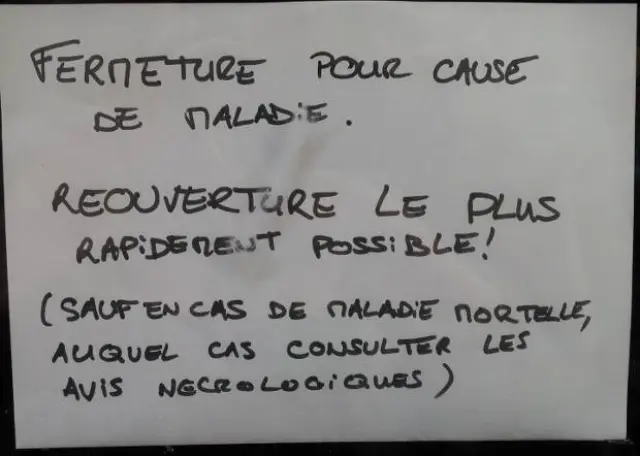 FERMETURE POUR CAUSE
DE MALADiE.
REOUVERTURE LE PLUS
RAPiDEMENT POSSiBLE!
(SAUF EN CAS DE MALADiE MORTELLE,
AUQUEL CAS CONSULTER LES
AViS NECROLOGiQUES)